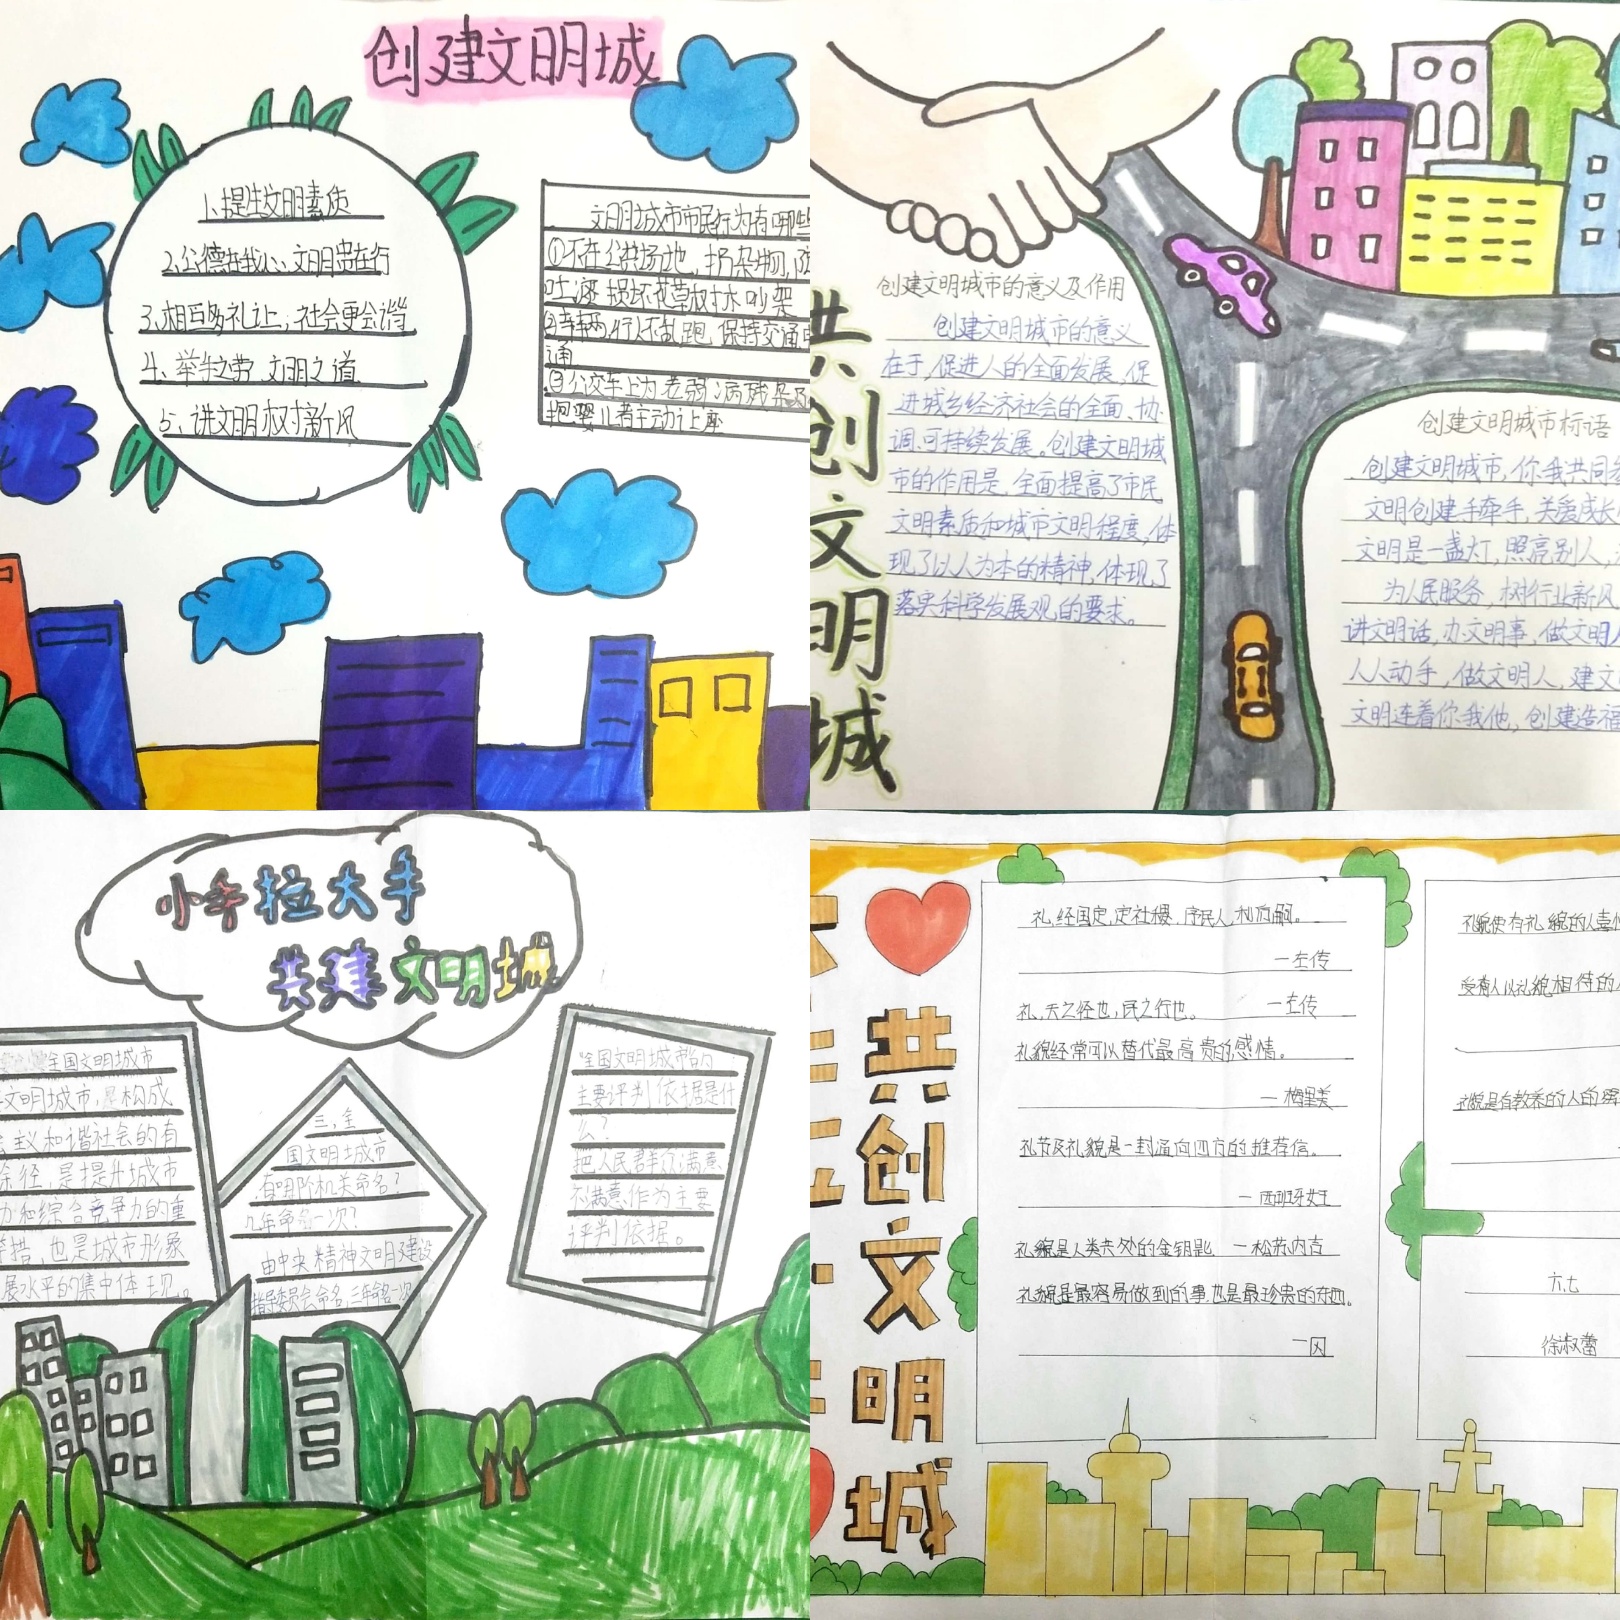 创建文明城
1、提生文明素质
2、公德在我心、文明贵在行
3、相互多礼让，社会更会谐
4、举手之劳 文明之道
5、讲文明树新风
文明城市市民行为有哪些
①不在公共场地，扔杂物，随
吐痰 损坏花草树木 吵架
②车辆，行人不乱跑 保持交通
通
③公交车上为老弱病残孕及
抱婴儿者主动让座
共创文明城
创建文明城市的意义及作用
创建文明城市的意义
在于，促进人的全面发展，促
进城乡经济社会的全面、协
调、可持续发展。创建文明城
市的作用是，全面提高了市民
文明素质和城市文明程度，体
现了以人为本的精神，体现了
落实科学发展观的要求。
创建文明城市标语
创建文明城市，你我共同
文明创建手牵手，关爱成长
文明是一盏灯，照亮别人，
为人民服务，树行业新风
讲文明话，办文明事，做文明人
人人动手，做文明人，建文
文明连着你我他，创建造福
小手拉大手
共建文明城
全国文明城市
文明城市，是构成
主义和谐社会的有
途径，是提升城市
力和综合竞争力的重
举措，也是城市形象
展水平的集中体现。
三、全
国文明城市
有哪阶机关命名？
几年命名一次？
由中央精神文明建设
指导委员会命名，三年命名一次
"全国文明城市"的
主要评判依据是什
么？
把人民群众满意
不满意作为主要
评判依据。
共创文明城
礼，经国定，定社稷，序民人，利后嗣。
—左传
礼，天之经也，民之行也。 —左传
礼貌经常可以替代最高贵的感情。
—梅里美
礼节及礼貌是一封通向四方的推荐信。
—西班牙女王
礼貌是人类共处的金钥匙 —松苏内吉
礼貌是最容易做到的事，也是最珍贵的东西。
—冈
礼貌使有礼貌的人喜
受着人以礼貌相待的人
礼貌是有教养的人的第
六七
徐淑蕾